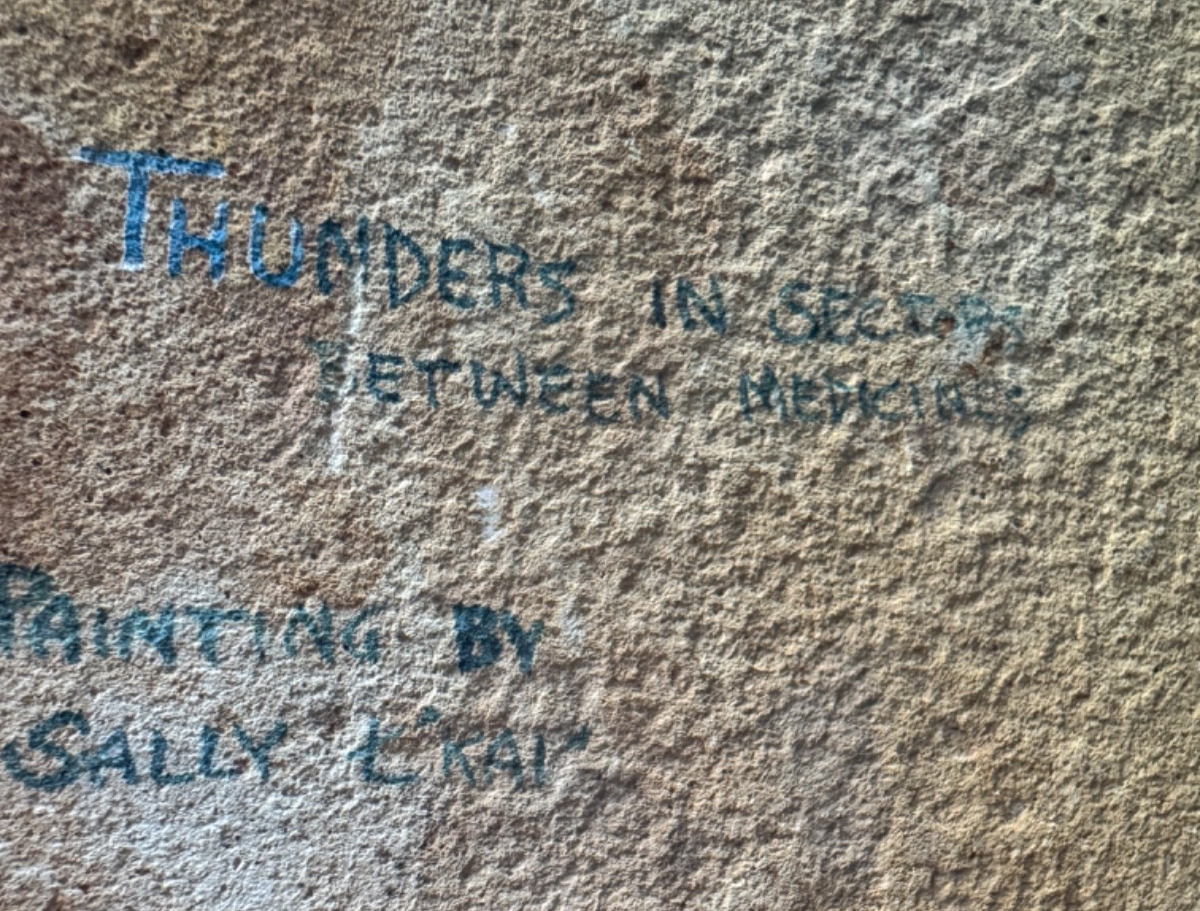 THUNDERS IN SECTORS
BETWEEN MEDICINES
PAINTING BY
SALLY